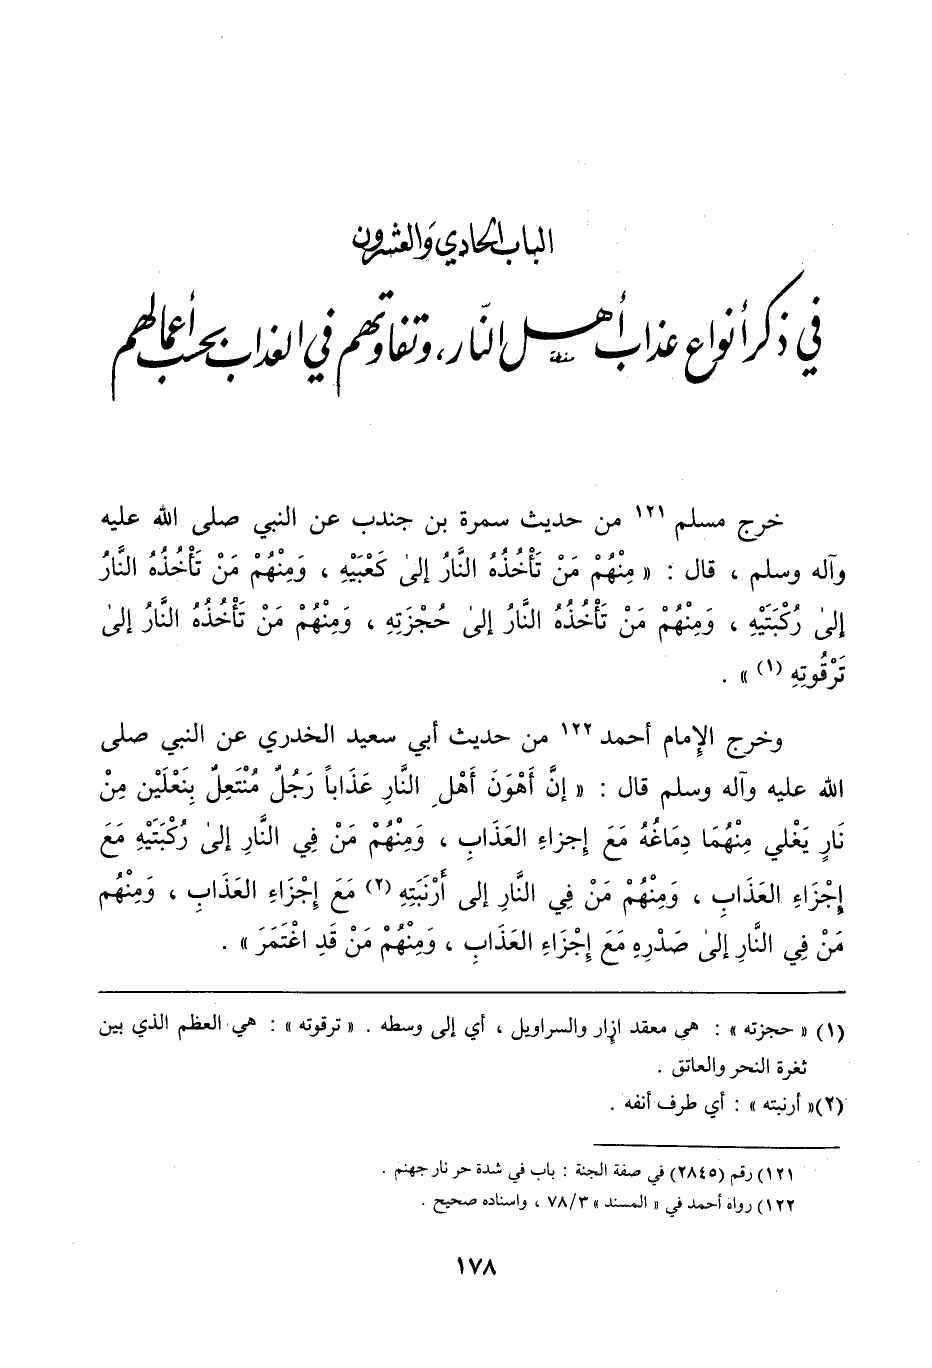 الباب الحادي والعشرون
في ذكر أنواع عذاب أهل النّار، وتفاوتهم في العذاب بحسب أعمالهم
خرج مسلم ١٢١ من حديث سمرة بن جندب عن النبي صلى الله عليه
وآله وسلم ، قال : « مِنْهُمْ مَنْ تَأْخُذُهُ النَّارُ إلىٰ كَعْبَيْهِ ، وَمِنْهُمْ مَنْ تَأْخُذُهُ النَّارُ
إلىٰ رُكْبَتَيْهِ ، وَمِنْهُمْ مَنْ تَأْخُذُهُ النَّارُ إلىٰ حُجْزَتِهِ ، وَمِنْهُمْ مَنْ تَأْخُذُهُ النَّارُ إلىٰ
تَرْقُوتِهِ (١) » .
وخرج الإمام أحمد ١٢٢ من حديث أبي سعيد الخدري عن النبي صلى
الله عليه وآله وسلم قال : « إنَّ أَهْوَنَ أَهْلِ النَّارِ عَذَاباً رَجُلٌ مُنْتَعِلٌ بِنَعْلَيْن مِنْ
نَارٍ يَغْلي مِنْهُمَا دِمَاغُهُ مَعَ إجزاءِ العَذَابِ ، وَمِنْهُمْ مَنْ فِي النَّارِ إلىٰ رُكْبَتَيْهِ مَعَ
إِجْزَاءِ العَذَابِ ، وَمِنْهُمْ مَنْ فِي النَّارِ إلى أَرْنَبَتِهِ (٢) مَعَ إِجْزَاءِ العَذَابِ ، وَمِنْهُم
مَنْ فِي النَّارِ إلىٰ صَدْرِهِ مَعَ إِجْزَاءِ العَذَابِ ، وَمِنْهُمْ مَنْ قَدِ اغْتَمَرَ » .
(١) « حجزته » : هي معقد ازِار والسراويل ، أي إلى وسطه . « ترقوته » : هي العظم الذي بين
ثغرة النحر والعاتق .
(٢)« أرنبته » : أي طرف أنفه .
١٢١) رقم (٢٨٤٥) في صفة الجنة : باب في شدة حر نار جهنم .
١٢٢) رواه أحمد في « المسند » ٧٨/٣ ، واسناده صحيح .
١٧٨